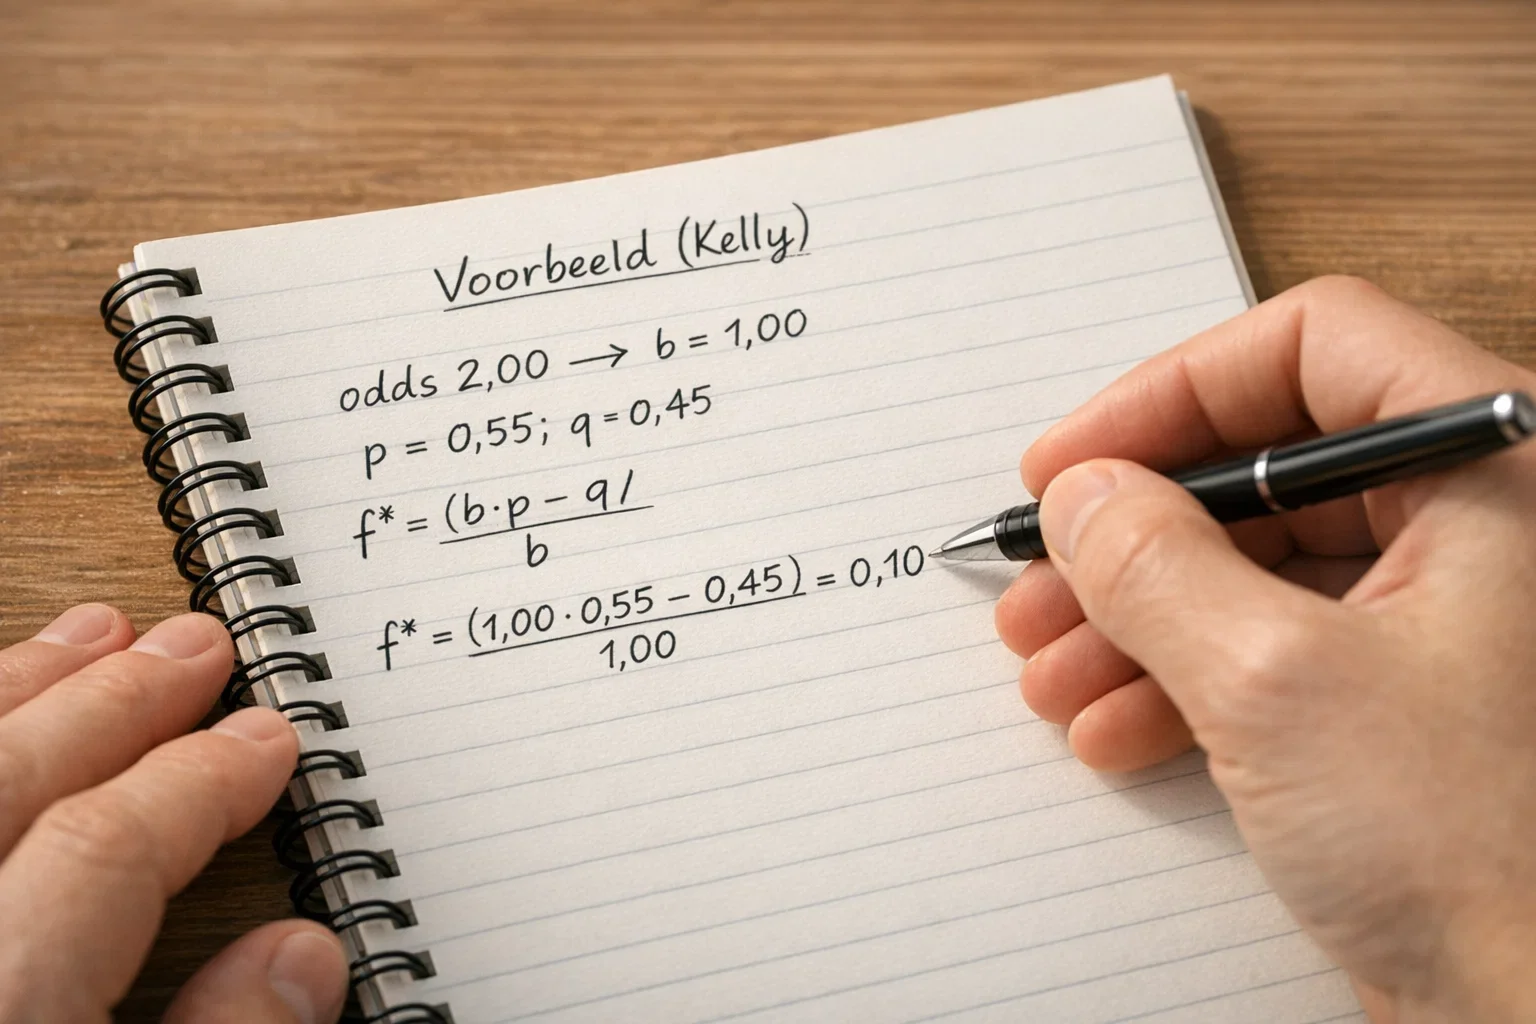 Voorbeeld (Kelly)
odds 2,00 → b = 1,00
p = 0,55; q = 0,45
f* = (b·p − q/
b
f* = (1,00 · 0,55 − 0,45) = 0,10
1,00